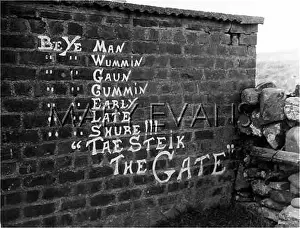 BEYE MAN
" " WUMMIN
" " GAUN
" " CUMMIN
" " EARLY
" " LATE
" " SHURE!!!
"TAE STEIK
THE GATE"